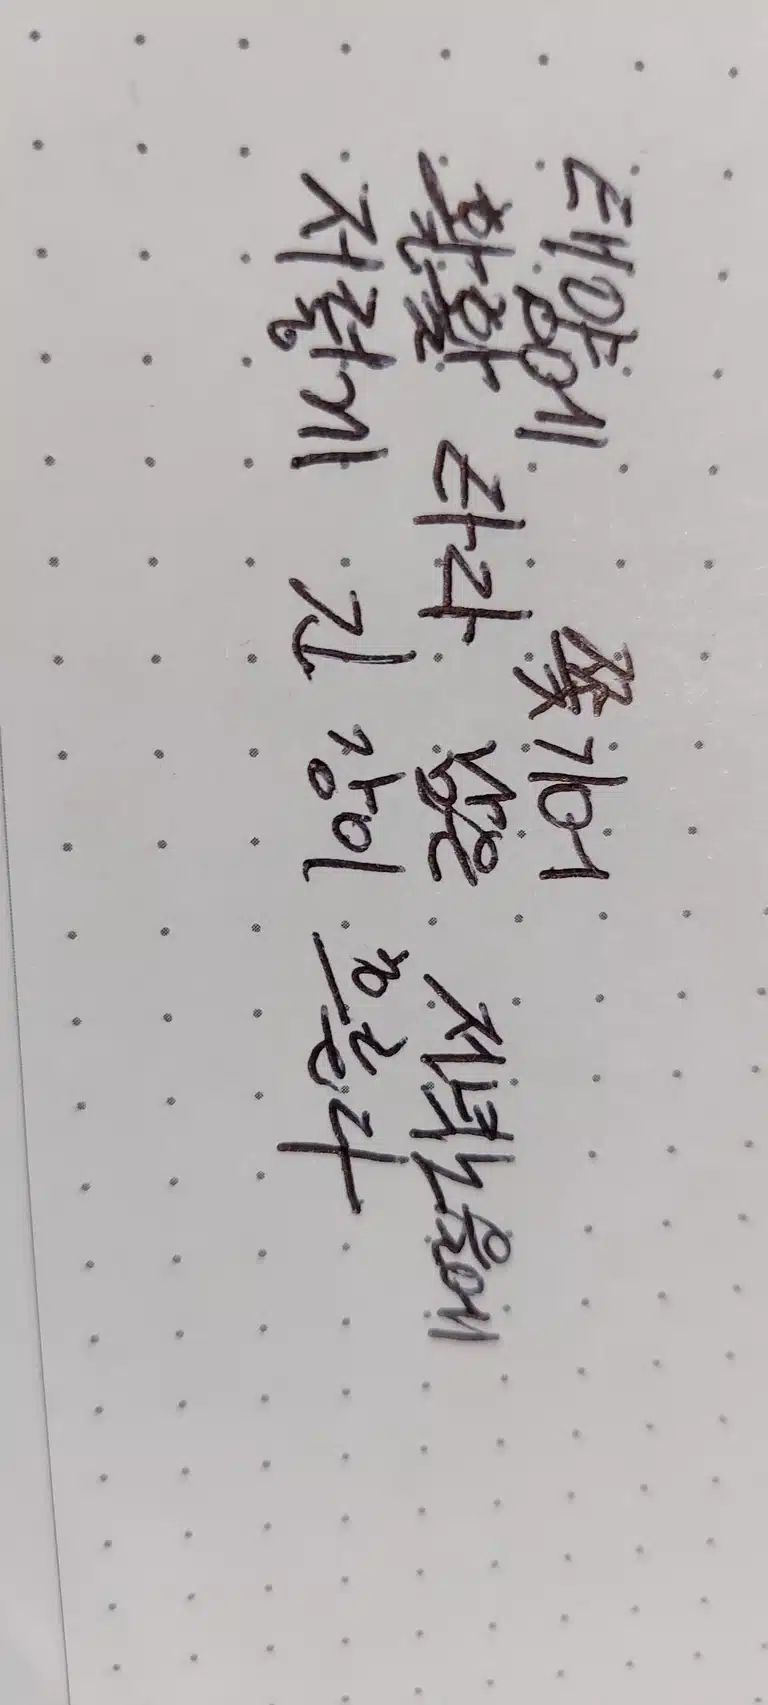 태양에 쫓기어
활활 타다 남은 저녁노을에
저렇게 긴 강이 흐른다